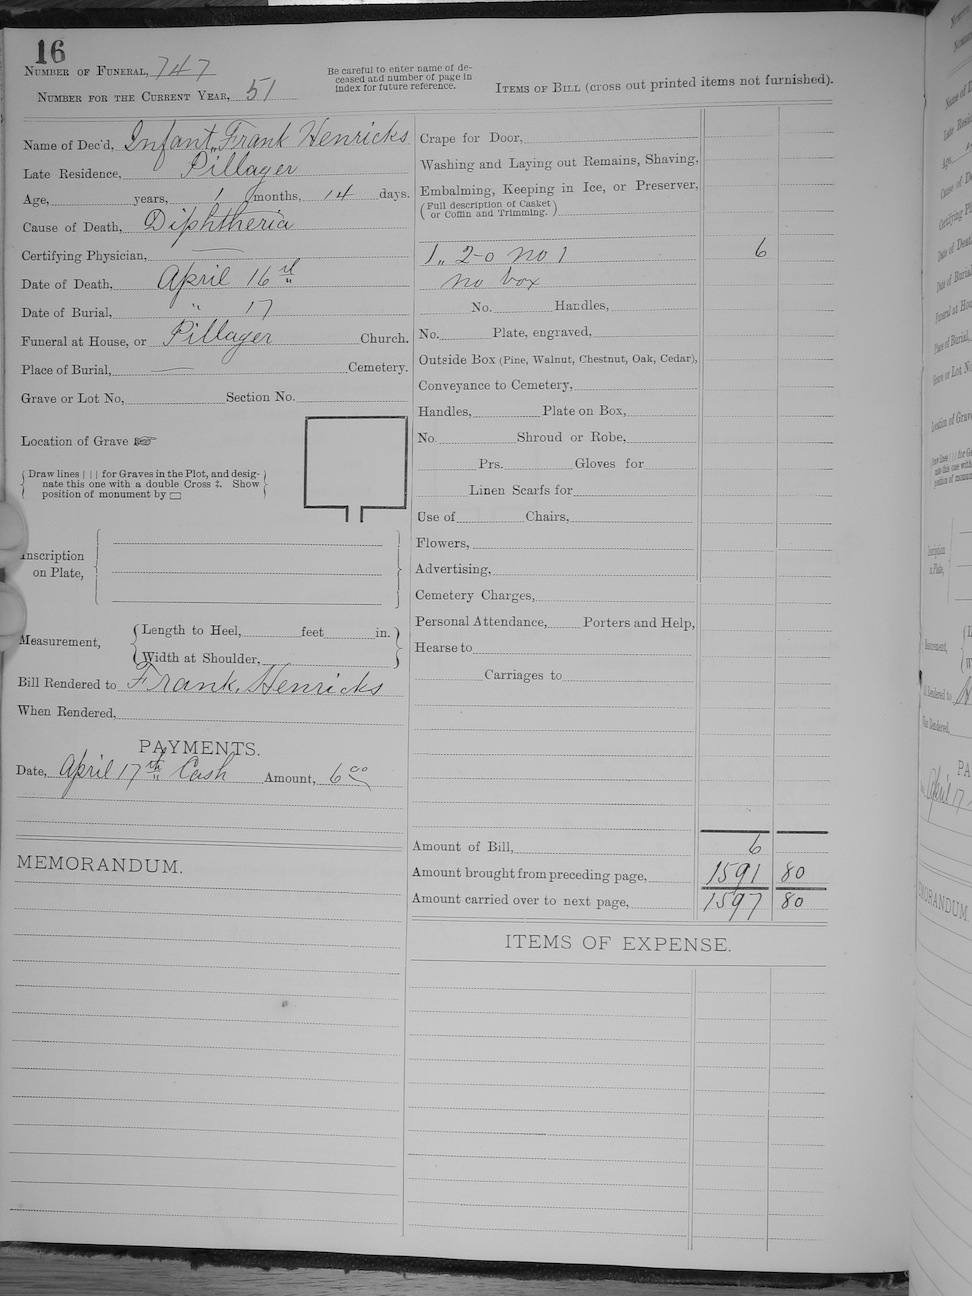 16
NUMBER OF FUNERAL, 747
NUMBER FOR THE CURRENT YEAR, 51
Be careful to enter name of de-
ceased and number of page in
index for future reference.
ITEMS OF BILL (cross out printed items not furnished).
Name of Dec'd, Infant, Frank Henricks
Late Residence, Pillager
Age, years, 1 months, 14 days.
Cause of Death, Diphtheria
Certifying Physician, —
Date of Death, April 16
Date of Burial, " 17
Funeral at House, or Pillager Church.
Place of Burial, — Cemetery.
Grave or Lot No, Section No.
Location of Grave ☞
Draw lines | | | for Graves in the Plot, and desig-
nate this one with a double Cross ‡. Show
position of monument by ▭
Inscription
on Plate,
Measurement,
Length to Heel, feet in.
Width at Shoulder,
Bill Rendered to Frank Henricks
When Rendered,
PAYMENTS.
Date, April 17th Cash Amount, 6 00
MEMORANDUM.
Crape for Door,
Washing and Laying out Remains, Shaving,
Embalming, Keeping in Ice, or Preserver,
(Full description of Casket
or Coffin and Trimming.)
1 " 2-0 no 1 6
no box
No. Handles,
No. Plate, engraved,
Outside Box (Pine, Walnut, Chestnut, Oak, Cedar),
Conveyance to Cemetery,
Handles, Plate on Box,
No. Shroud or Robe,
Prs. Gloves for
Linen Scarfs for
Use of Chairs,
Flowers,
Advertising,
Cemetery Charges,
Personal Attendance, Porters and Help,
Hearse to
Carriages to
Amount of Bill, 6
Amount brought from preceding page, 1591 80
Amount carried over to next page, 1597 80
ITEMS OF EXPENSE.